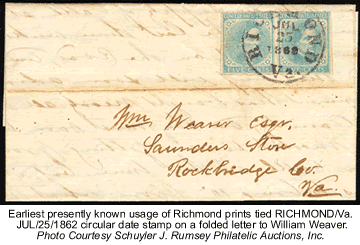 RICHMOND
JUL
25
1862
Va.
FIVE CENTS
Wm. Weaver Esqr.
Saunders Store
Rockbridge Co.
Va.
Earliest presently known usage of Richmond prints tied RICHMOND/Va.
JUL/25/1862 circular date stamp on a folded letter to William Weaver.
Photo Courtesy Schuyler J. Rumsey Philatelic Auctions, Inc.